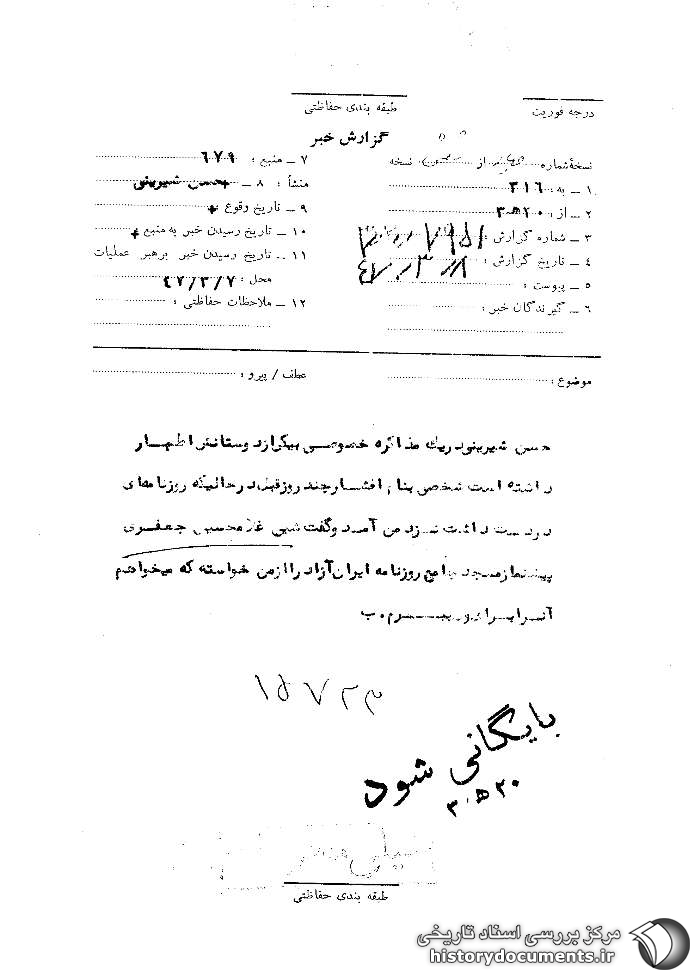 درجه فوریت
طبقه بندی حفاظتی
گزارش خبر
نسخهٔ شماره از نسخه
۱ ــ به : ۳۱۶
۲ ــ از : ۲۰ ﻫ ۳
۳ ــ شماره گزارش :
۴ ــ تاریخ گزارش : ۴۷/۳/۸
۵ ــ پیوست :
۶ ــ گیرندگان خبر :
۷ ــ منبع : ۶۷۹
۸ ــ منشأ : حسن شیربنی
۹ ــ تاریخ وقوع +
۱۰ ــ تاریخ رسیدن خبر به منبع +
۱۱ ــ تاریخ رسیدن خبر برهبر عملیات
محل : ۴۷/۳/۷
۱۲ ــ ملاحظات حفاظتی :
موضوع :
عطف / پیرو :
حسن در یک مذاکره خصوصی از دوستانش اظهار
داشته است شخصی بنام افشار چند روز قبل در حالیکه روزنامه‌ای
در دست داشت نزد من آمد و گفت غلامحسین جعفری
پیشنماز مسجد جامع روزنامه ایران آزاد را از من خواسته که میخواهم
آنرا برای او ببرم . ب
۱۵۷۲۳
بایگانی شود
۲۰ ﻫ ۳
طبقه بندی حفاظتی
مرکز بررسی اسناد تاریخی
historydocuments.ir